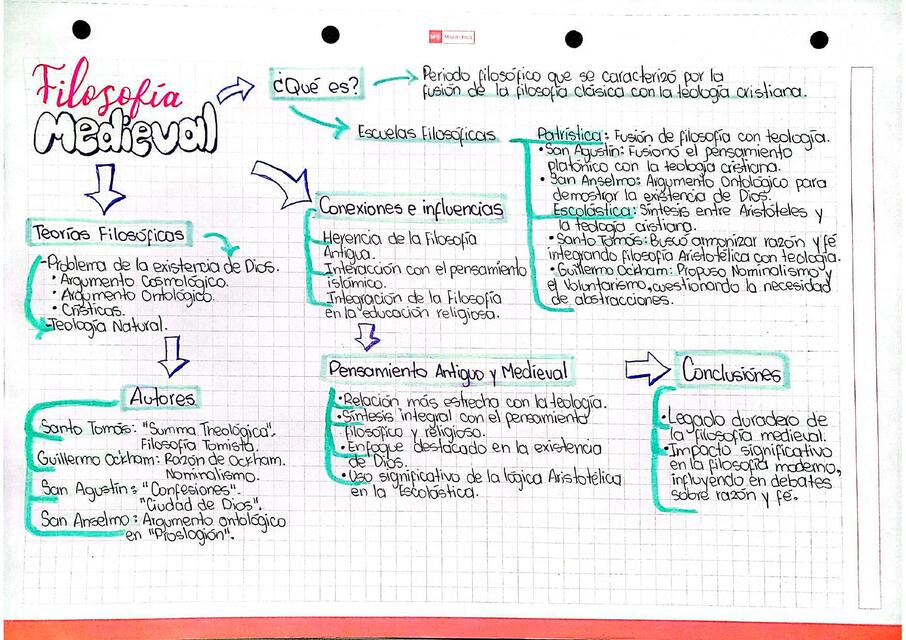 Filosofía
Medieval
¿Qué es?
Periodo filosófico que se caracterizó por la
fusión de la filosofía clásica con la teología cristiana.
Escuelas Filosóficas
Patrística: Fusión de filosofía con teología.
•San Agustín: Fusionó el pensamiento
platónico con la teología cristiana.
•San Anselmo: Argumento Ontológico para
demostrar la existencia de Dios.
Escolástica: Síntesis entre Aristóteles y
la teología cristiana.
•Santo Tomás: Buscó armonizar razón y fé
integrando filosofía Aristotélica con teología.
•Guillermo Ockham: Propuso Nominalismo y
el Voluntarismo, cuestionando la necesidad
de abstracciones.
Conexiones e influencias
Herencia de la Filosofía
Antigua.
Interacción con el pensamiento
islámico.
Integración de la Filosofía
en la educación religiosa.
Teorías Filosóficas
-Problema de la existencia de Dios.
• Argumento Cosmológico.
• Argumento Ontológico.
• Crísticas.
-Teología Natural.
Autores
Santo Tomás: "Summa Theológica".
Filosofía Tomista.
Guillermo Ockham: Razón de Ockham.
Nominalismo.
San Agustín: "Confesiones".
"Ciudad de Dios".
San Anselmo: Argumento ontológico
en "Proslogión".
Pensamiento Antiguo y Medieval
•Relación más estrecha con la teología.
•Síntesis integral con el pensamiento
filosófico y religioso.
•Enfoque destacado en la existencia
de Dios.
•Uso significativo de la lógica Aristotélica
en la Escolástica.
Conclusiónes
•Legado duradero de
la filosofía medieval.
•Impacto significativo
en la filosofía moderno,
influyendo en debates
sobre razón y fé.